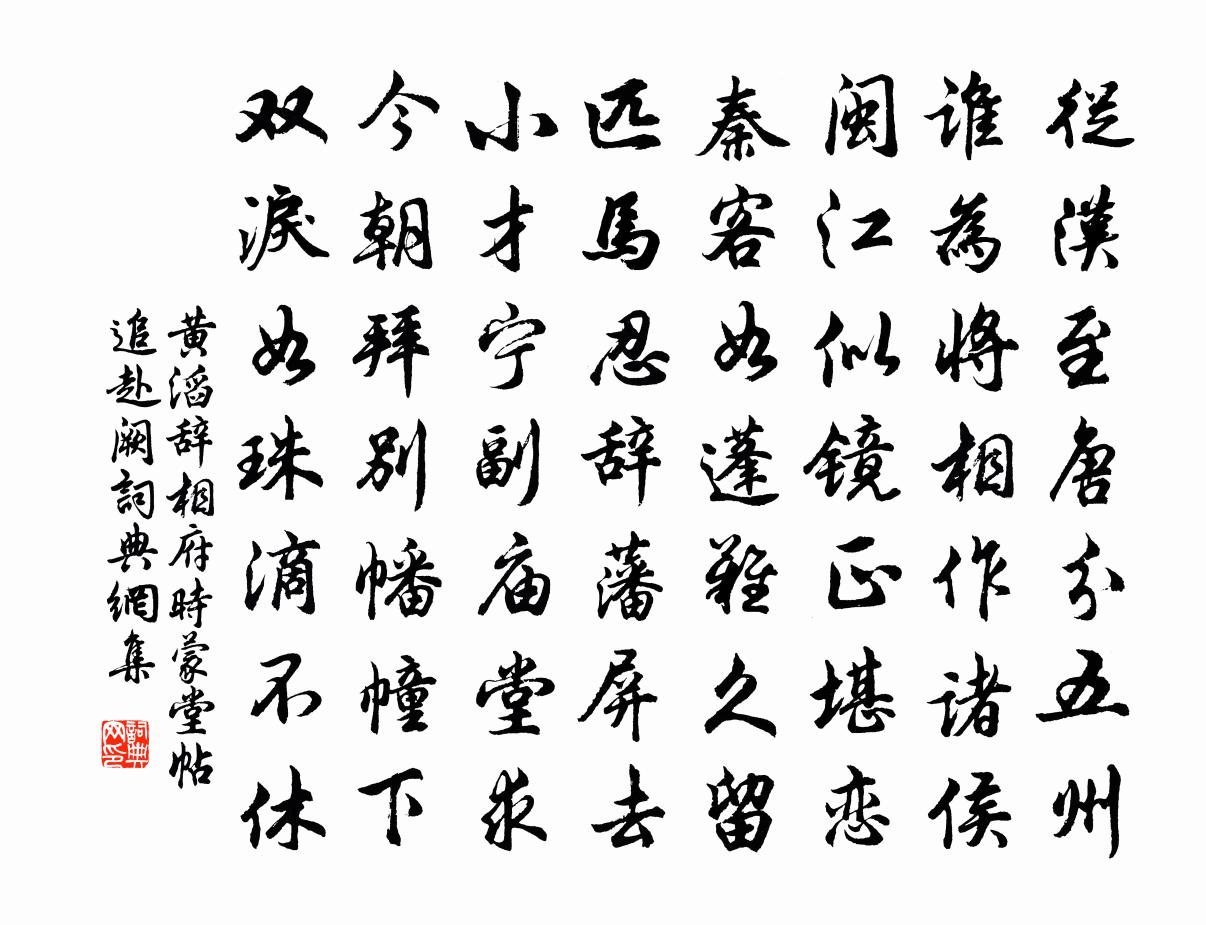 從漢至唐分五州
谁為將相作诸侯
闽江似镜正堪恋
秦客如蓬難久留
匹馬忍辞藩屏去
小才宁副庙堂求
今朝拜别幡幢下
双淚如珠滴不休
黄滔辞相府時蒙堂帖
追赴阙詞典網集
詞典
网印